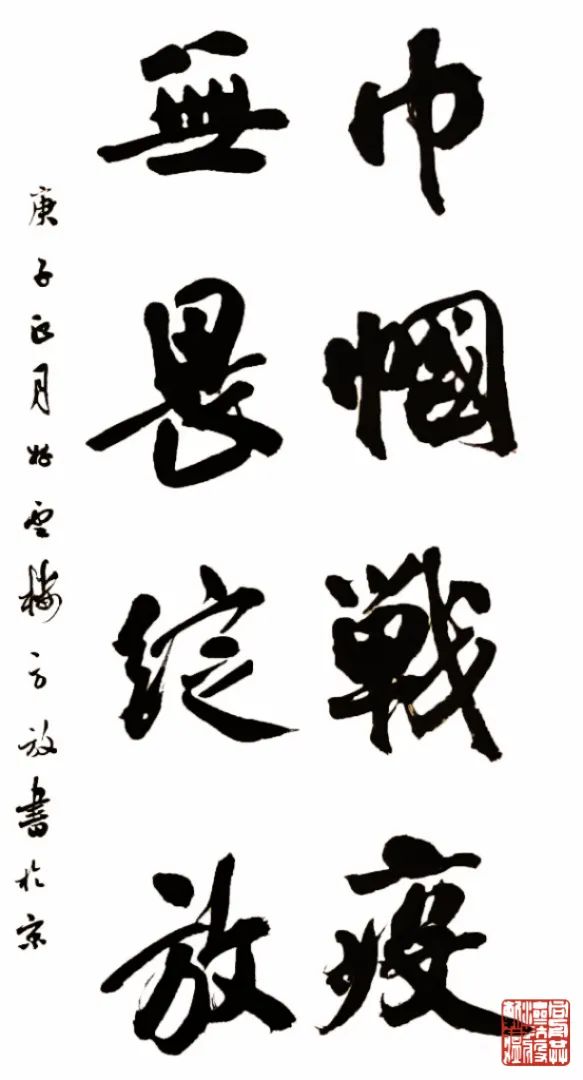 巾幗戰疫
無畏綻放
庚子正月方放書於京